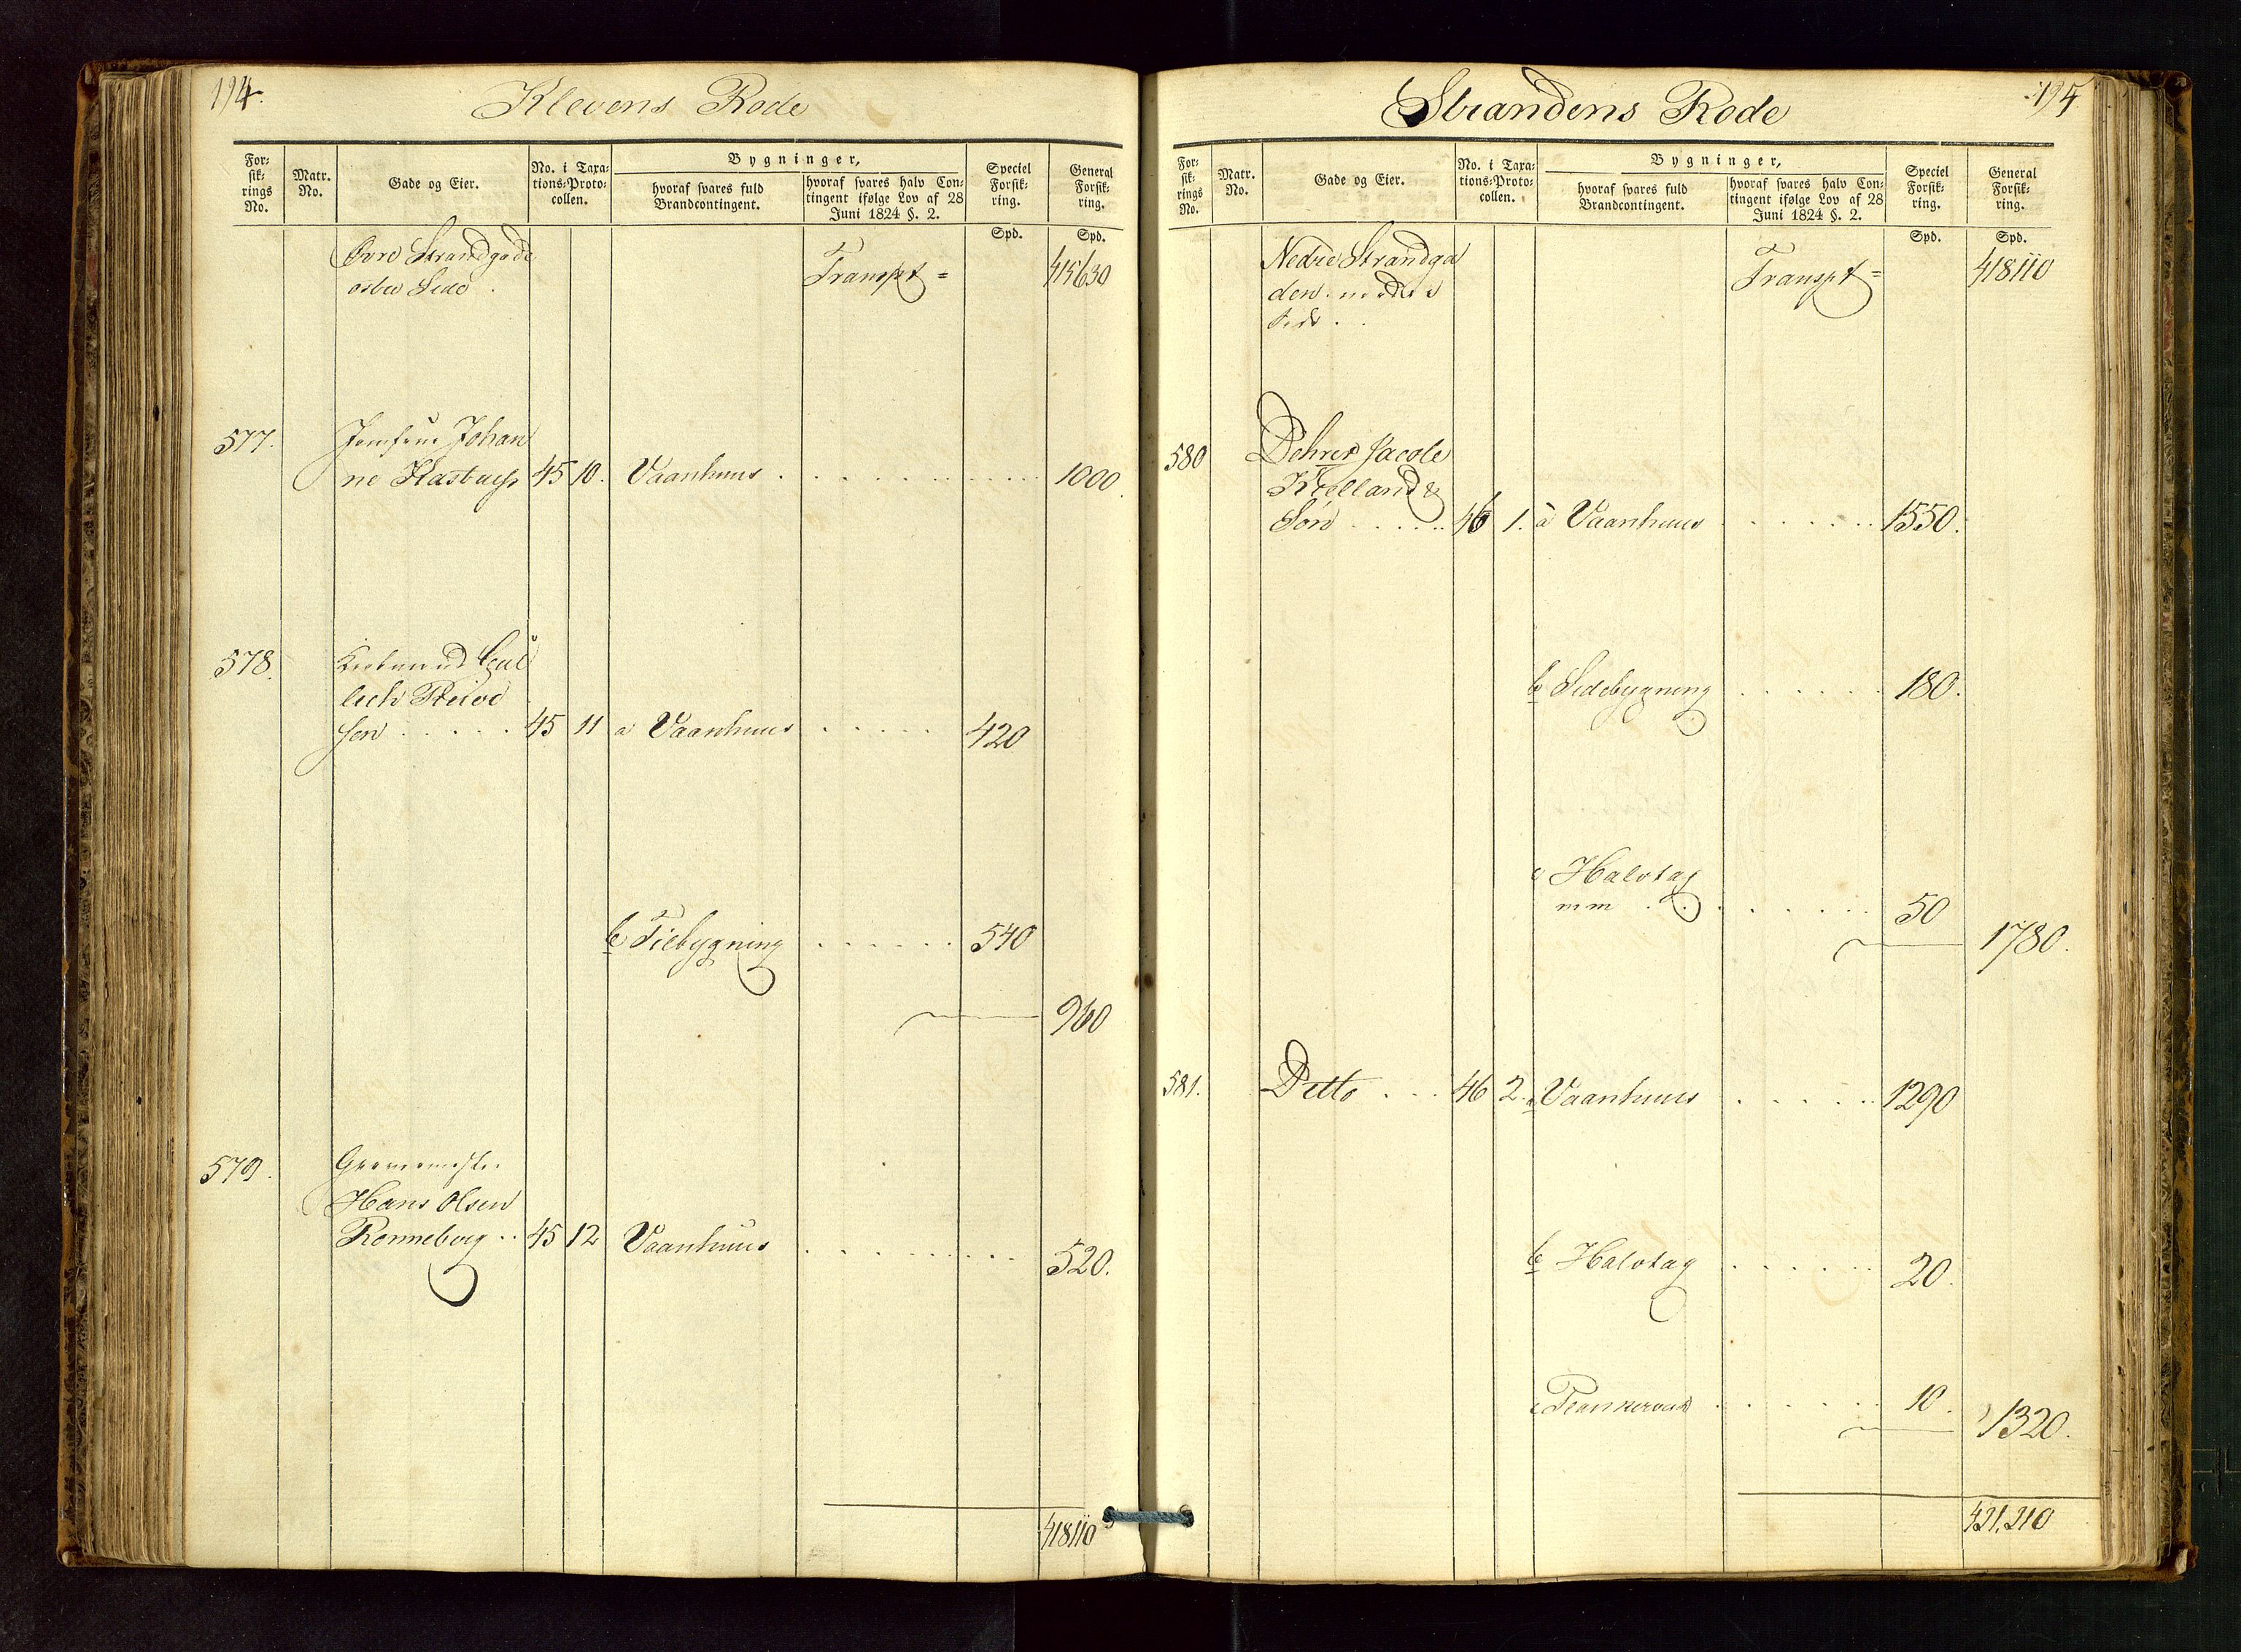 194.
Klevens Rode
For-
sik-
rings
No.
Matr.
No.
Gade og Eier.
No. i Taxa-
tions-Proto-
collen.
Bygninger,
hvoraf svares fuld
Brandcontingent.
hvoraf svares halv Con-
tingent ifølge Lov af 28
Juni 1824 §. 2.
Speciel
Forsik-
ring.
General
Forsik-
ring.
Spd.
Spd.
Øvre Strandgade
Transpt = 415630
577. Jomfrue Johan
ne 45 10. Vaanhuus . . . . . . 1000.
578.
45 11 a Vaanhuus . . . . . 420
b Tilbygning . . . . . 540
960
579.
Hans Olsen
Ronneborg . . 45 12 Vaanhuus . . . . . . 520.
418110
195
Strandens Rode
For-
sik-
rings
No.
Matr.
No.
Gade og Eier.
No. i Taxa-
tions-Proto-
collen.
Bygninger,
hvoraf svares fuld
Brandcontingent.
hvoraf svares halv Con-
tingent ifølge Lov af 28
Juni 1824 §. 2.
Speciel
Forsik-
ring.
General
Forsik-
ring.
Spd.
Spd.
Nedre Strandga
den nedre
Side . .
Transpt = 418110
580 Dhrr Jacob
Kielland &
Søn . . . . 46 1. a Vaanhuus . . . . . . 1550.
b Sidebygning . . . . . 180.
c Halvtag
mm . . . . . . 50
1780.
581. Ditto . . . 46 2. a Vaanhuus . . . . . 1290
b Halvtag . . . . . 20.
c Plankeværk . . . . . . 10.
1320.
421,210